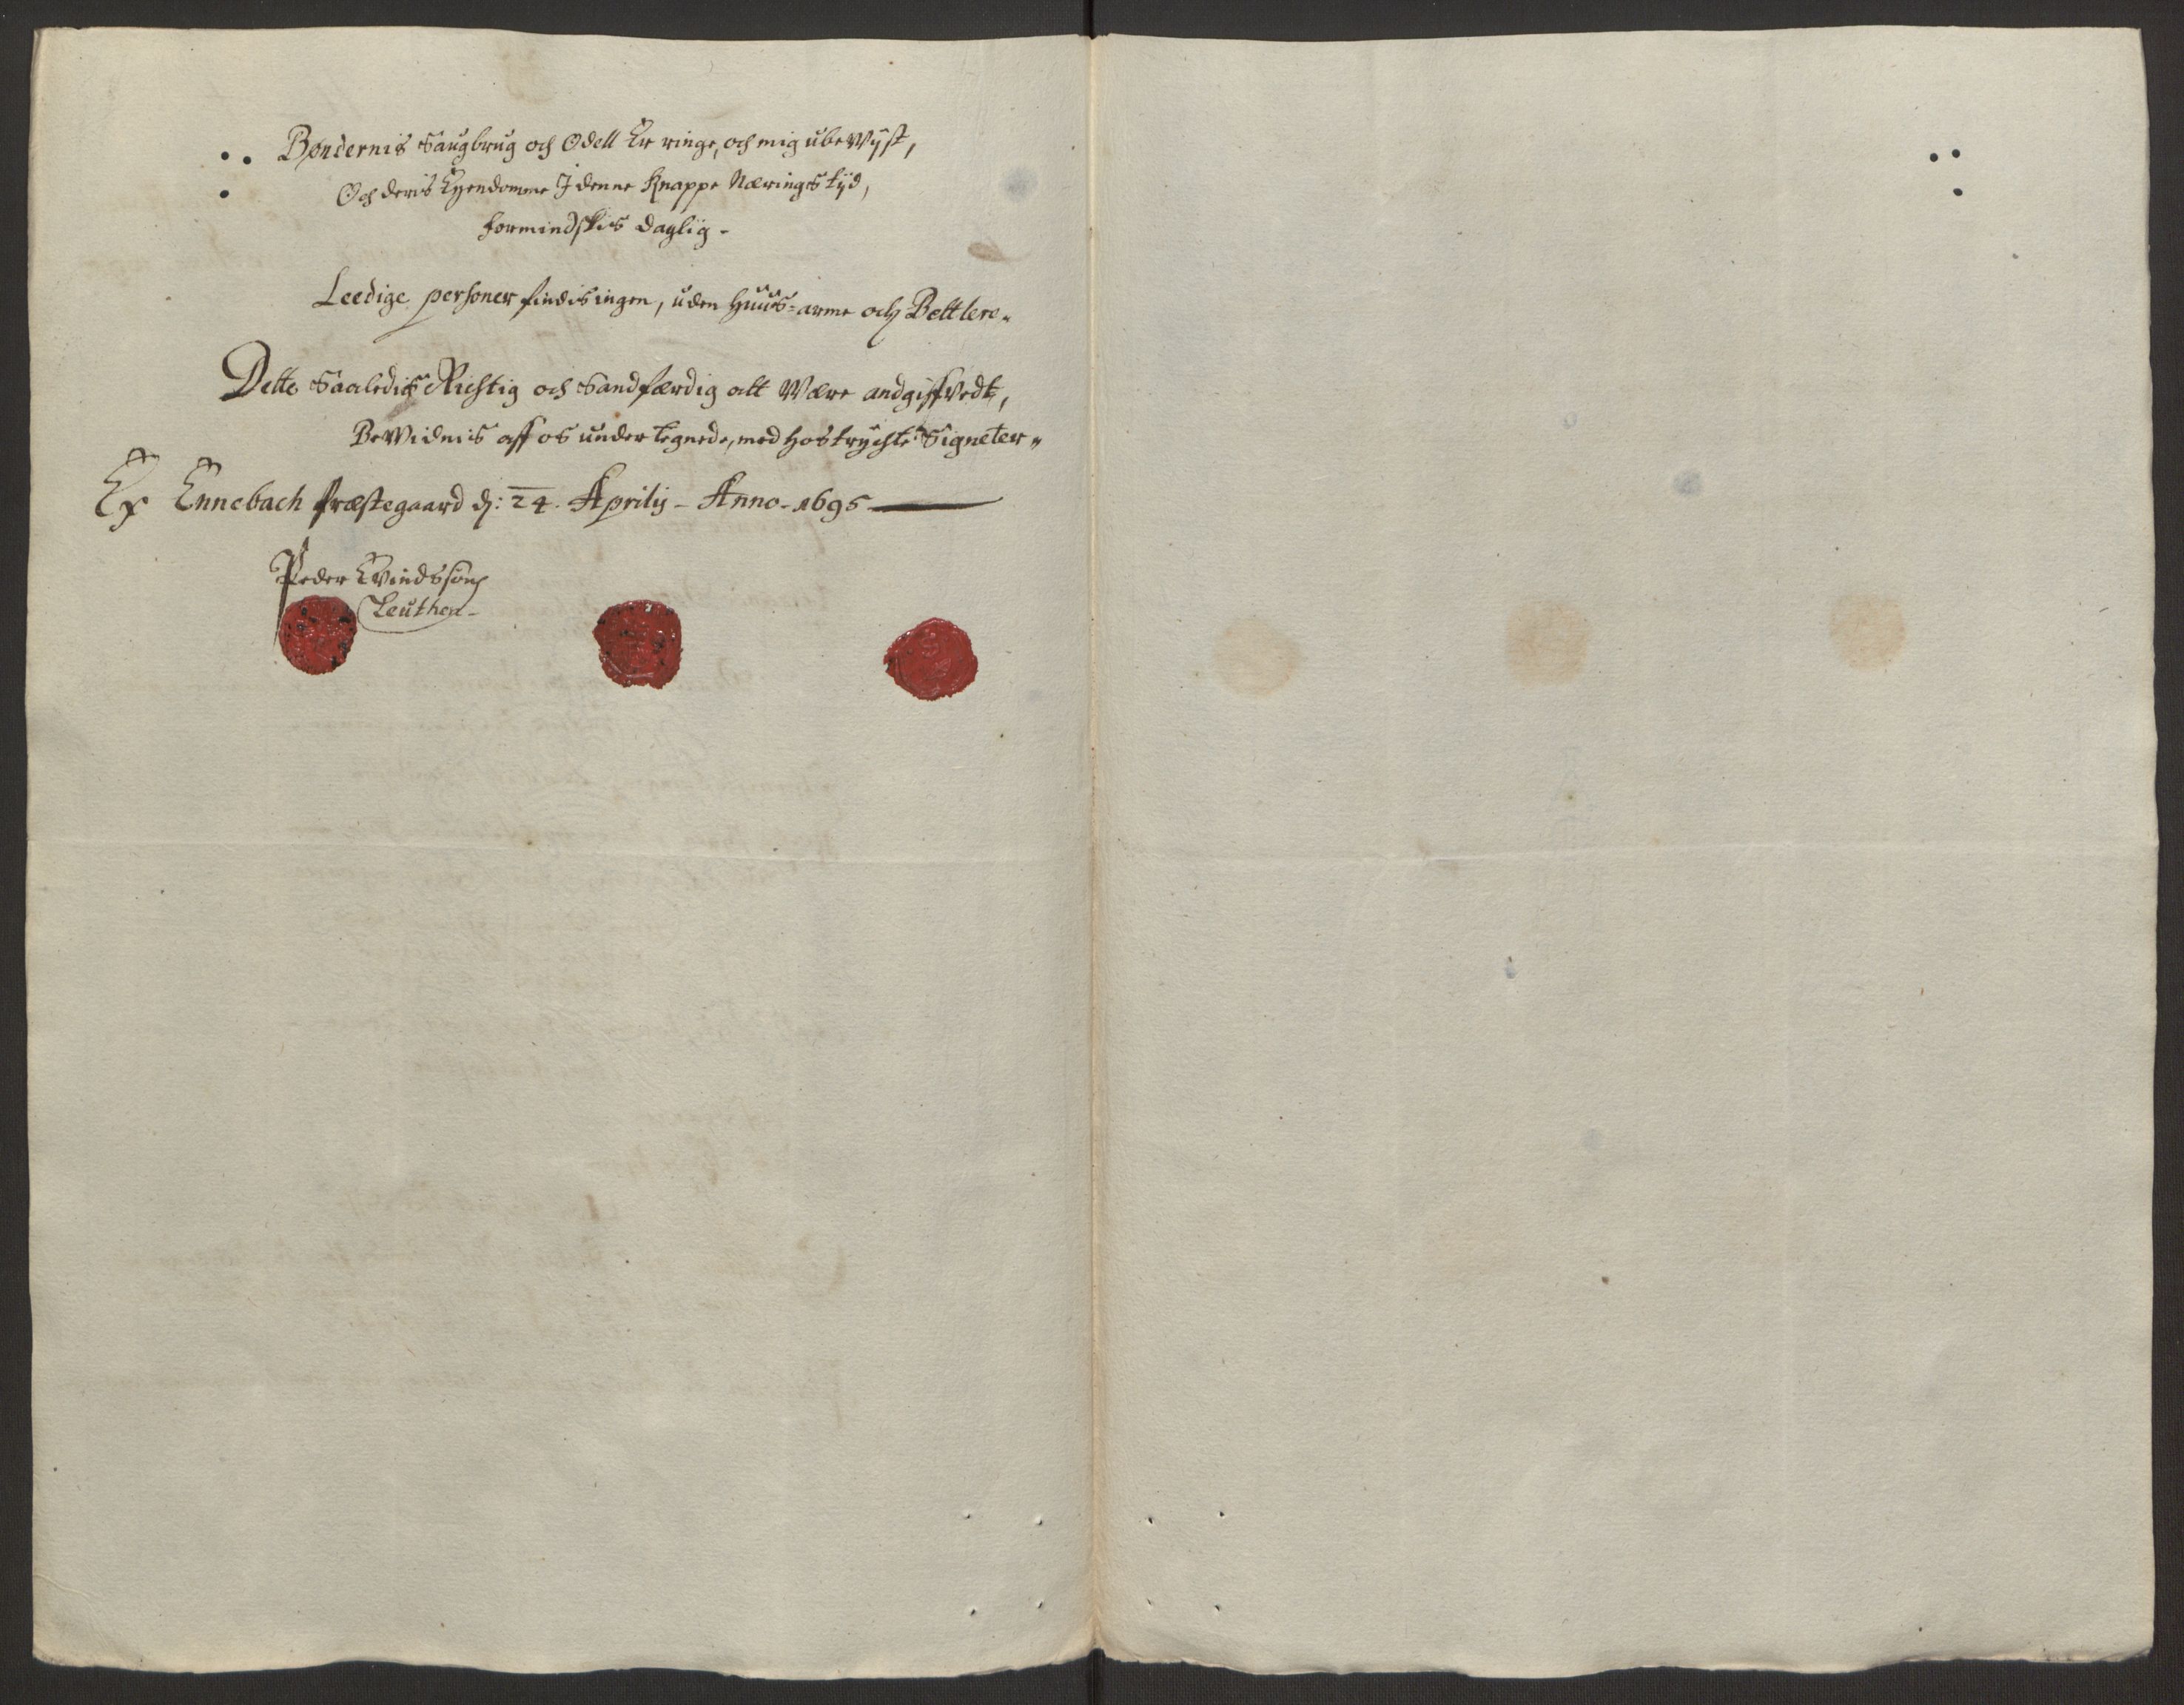 Bøndernis Saugbrug och Odell Er ringe, och mig ubeWyst,
Och deris Eyendomme I denne Knappe Nærings tyd,
formindskis daglig-
Leedige personer findis ingen, uden Huus=arme och Bettlere.
Dette Saaledis Richtig och Sandfærdig att Være andgiffvedt,
BeVidnis aff os undertegnede, med hostrychte Signeter„
Ex Ennebach Præstegaard d: 24. Aprilis - Anno - 1695
Peder Evindssøn
Leuthen-